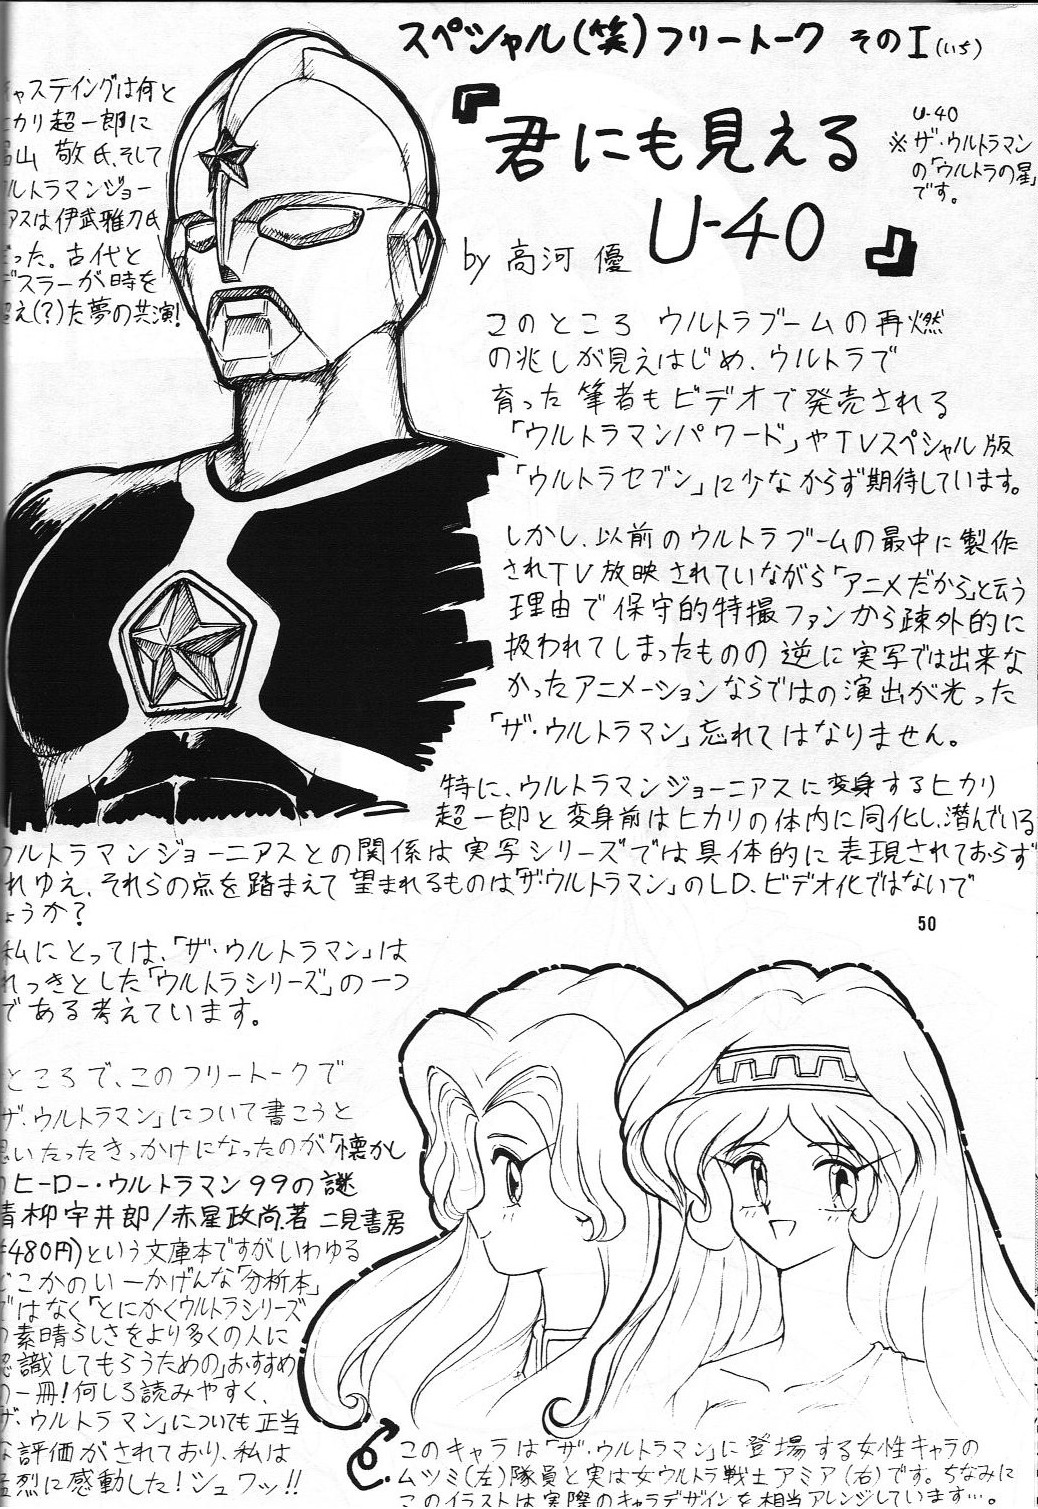 スペシャル(笑)フリートーク そのI(いち)
『君にも見える
U-40』
by 高河 優
U-40
※ザ・ウルトラマン
の「ウルトラの星」
です。
ャスティングは何と
カリ超一郎に
山 敬氏、そして
ルトラマンジョー
アスは伊武雅刀氏
った。古代と
デスラーが時を
え(?)た夢の共演!
このところ ウルトラブームの再燃
の兆しが見えはじめ、ウルトラで
育った筆者もビデオで発売される
「ウルトラマンパワード」やTVスペシャル版
「ウルトラセブン」に少なからず期待しています。
しかし、以前のウルトラブームの最中に製作
されTV放映されていながら「アニメだから」と云う
理由で保守的特撮ファンから疎外的に
扱われてしまったものの逆に実写では出来な
かったアニメーションならではの演出が光った
「ザ・ウルトラマン」忘れてはなりません。
特に、ウルトラマンジョーニアスに変身するヒカリ
超一郎と変身前はヒカリの体内に同化し、潜んでいる
ウルトラマンジョーニアスとの関係は実写シリーズでは具体的に表現されておらず
れゆえ、それらの点を踏まえて望まれるものは「ザ・ウルトラマン」のLD、ビデオ化ではないで
ょうか?
50
私にとっては、「ザ・ウルトラマン」は
れっきとした「ウルトラシリーズ」の一つ
である考えています。
ところで、このフリートークで
ザ・ウルトラマン」について書こうと
思いたったきっかけになったのが「懐かし
のヒーロー・ウルトラマン99の謎
青柳宇井郎/赤星政尚著 二見書房
¥480円)という文庫本ですがいわゆる
どこかのいーかげんな「分析本」
ではなく「とにかくウルトラシリーズ
の素晴らしさをより多くの人に
認識してもらうための」おすすめ
の一冊!何しろ読みやすく、
ザ・ウルトラマン」についても正当
な評価がされており、私は
猛烈に感動した!シュワッ!!
このキャラは「ザ・ウルトラマン」に登場する女性キャラの
ムツミ(左)隊員と実は女ウルトラ戦士アミア(右)です。ちなみに
このイラストは実際のキャラデザインを相当アレンジしています…。